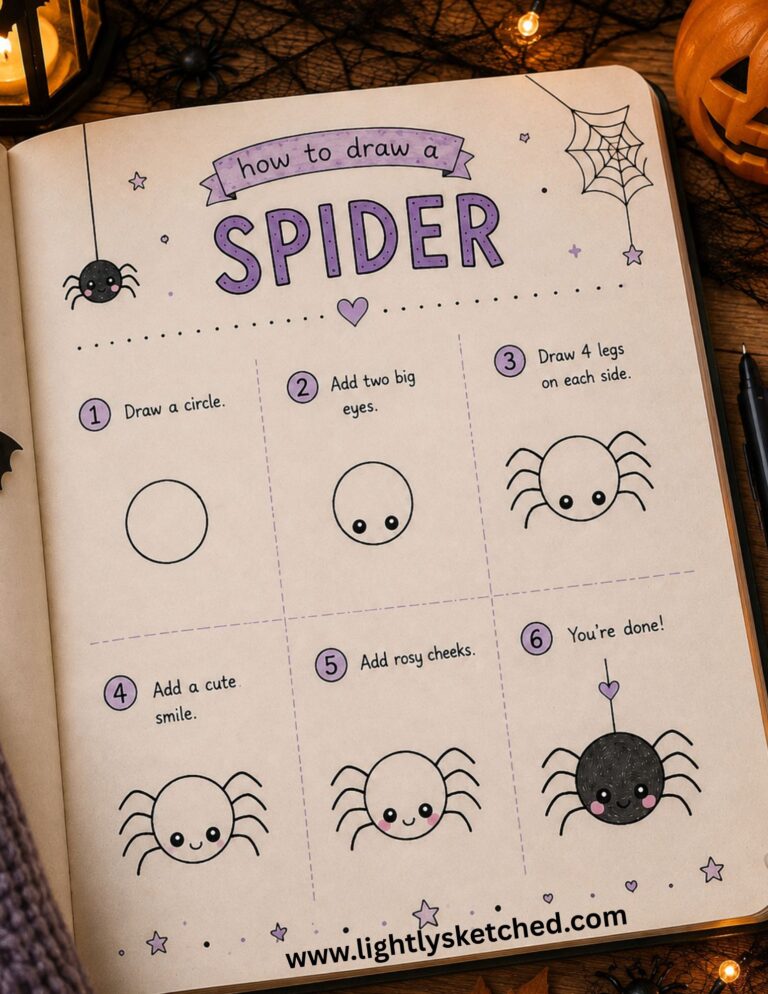 how to draw a
SPIDER
1 Draw a circle.
2 Add two big
eyes.
3 Draw 4 legs
on each side.
4 Add a cute
smile.
5 Add rosy cheeks.
6 You're done!
www.lightlysketched.com